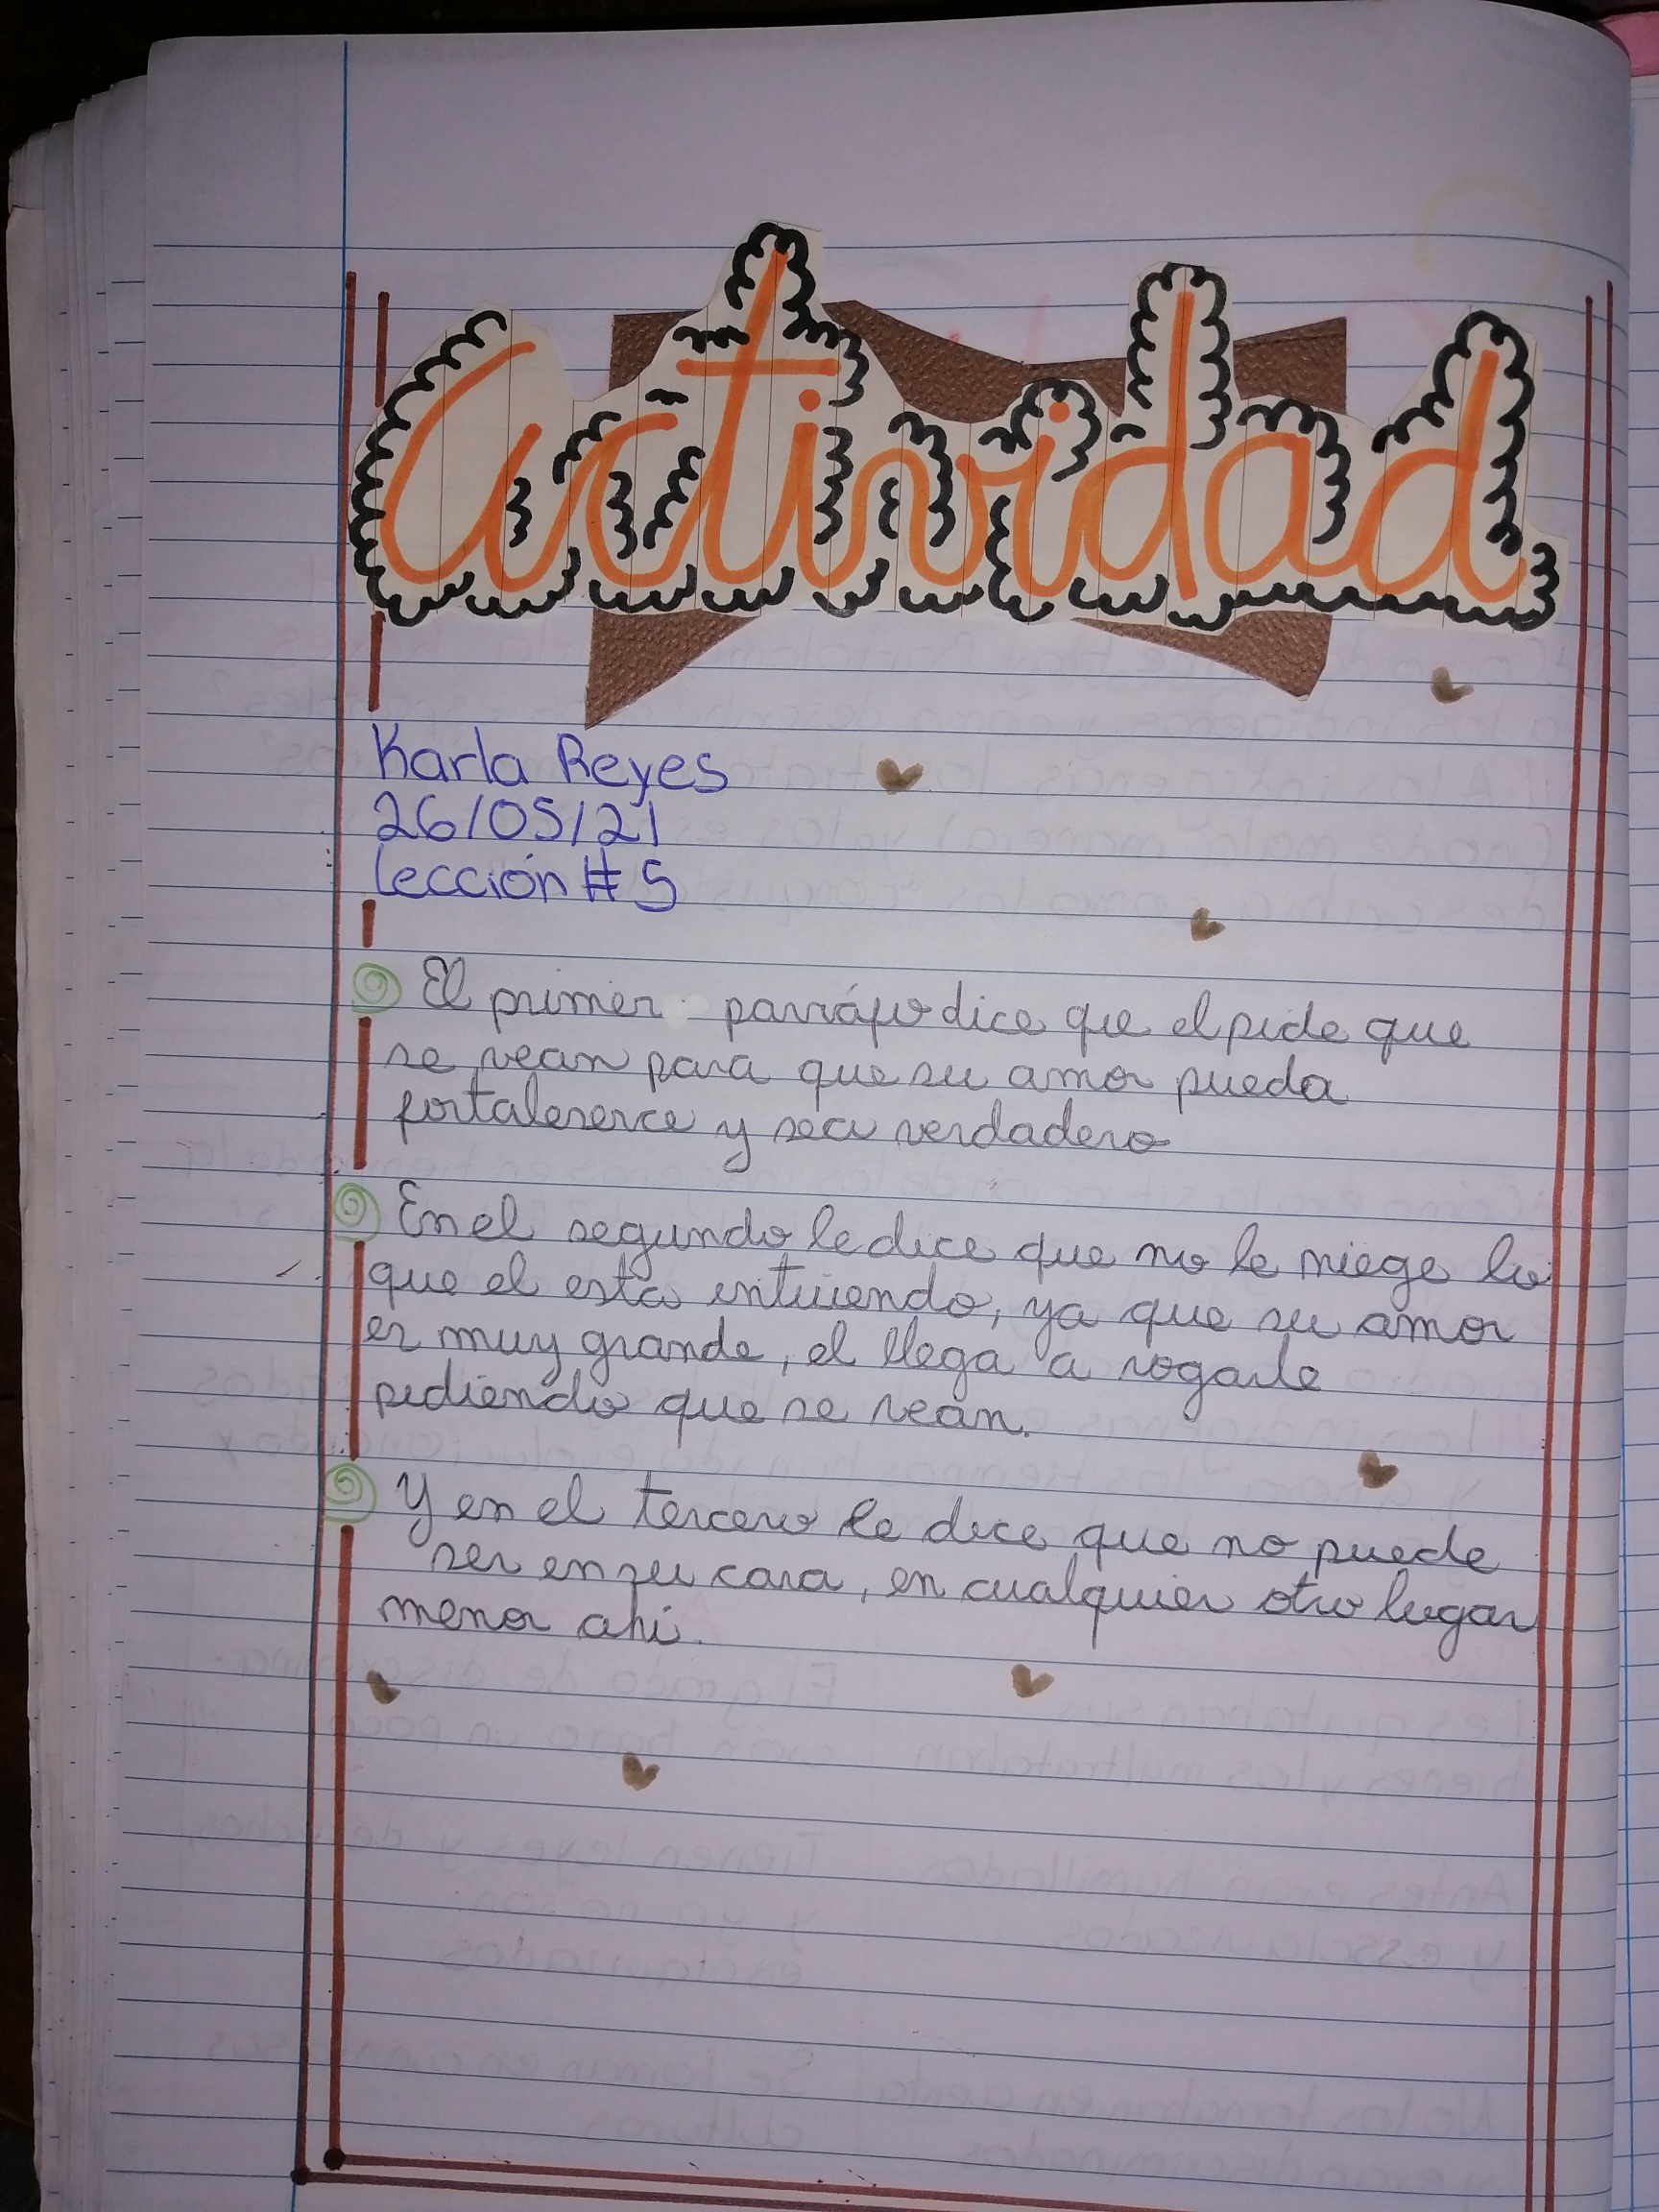 actividad
Karla Reyes
26/05/21
Lección #5
El primer parráfo dice que el pide que
se vean para que su amor pueda
fortaleserce y sea verdadero
En el segundo le dice que no le niege lo
que el esta intuiendo, ya que su amor
es muy grande, el llega a rogarle
pidiendo que se vean.
Y en el tercero le dice que no puede
ser en su casa, en cualquier otro lugar
menos ahi.